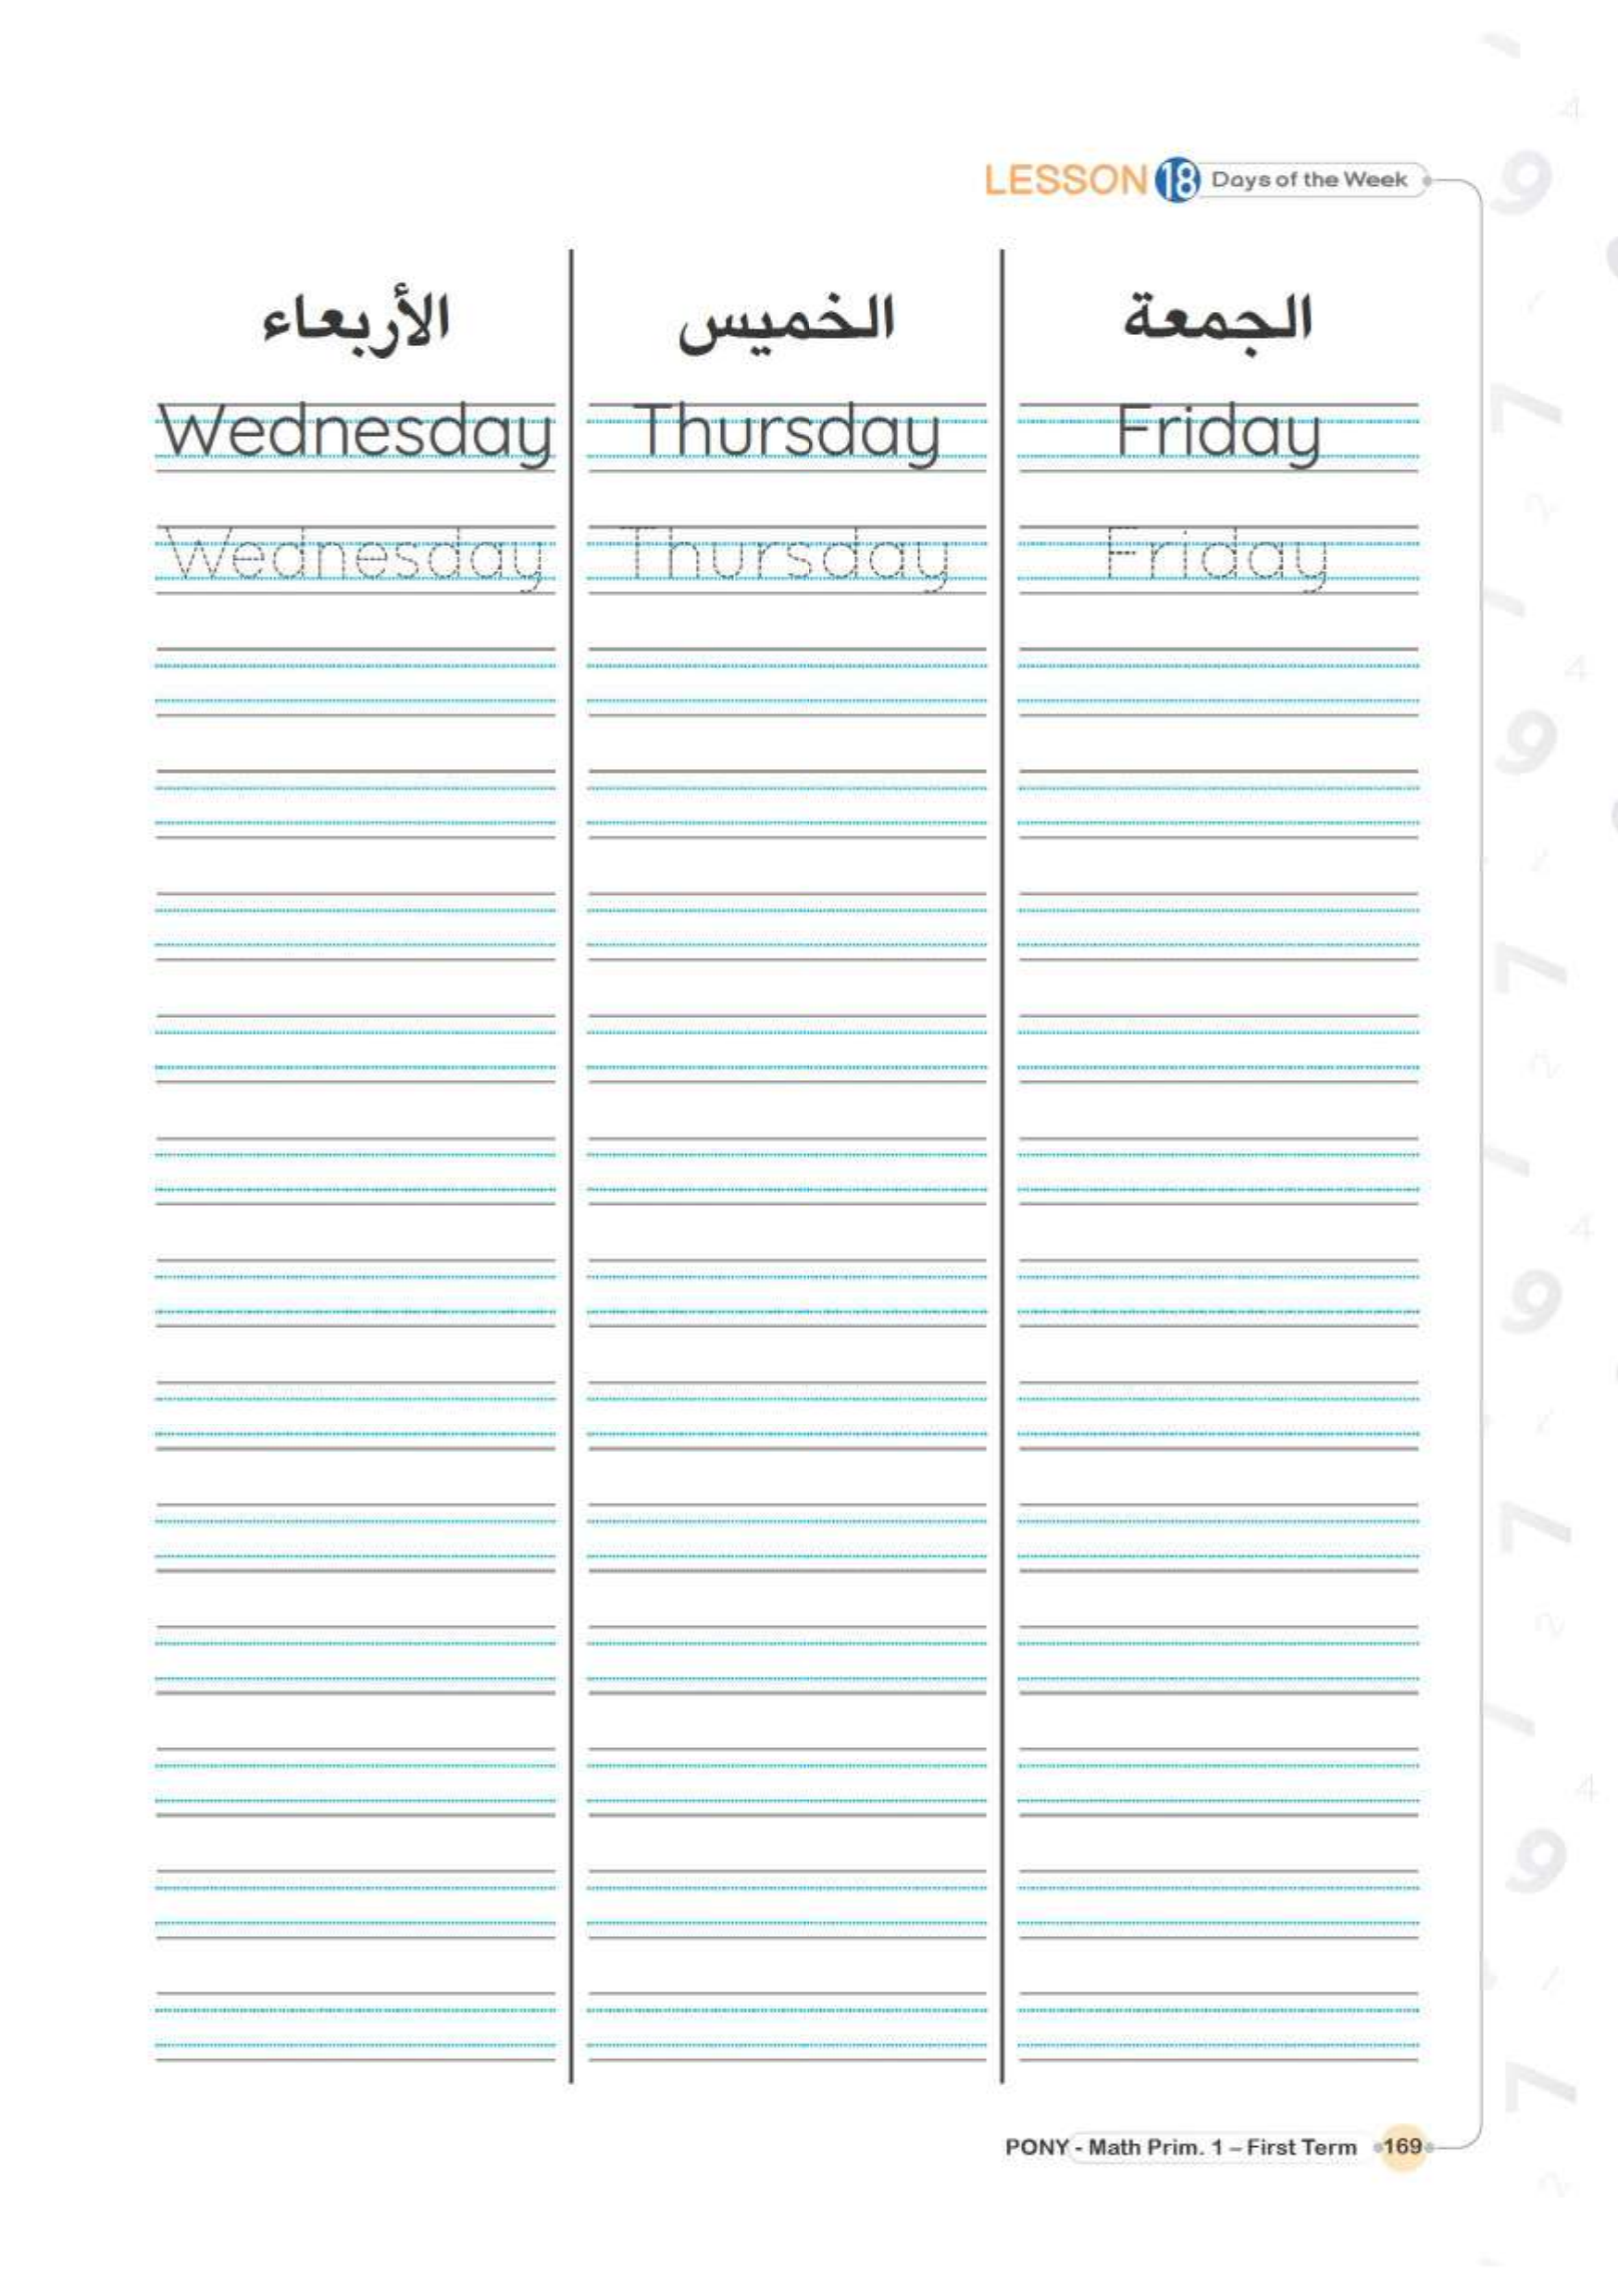 LESSON 18 Days of the Week
الأربعاء
الخميس
الجمعة
Wednesday
Thursday
Friday
Wednesday
Thursday
Friday
PONY - Math Prim. 1 – First Term 169